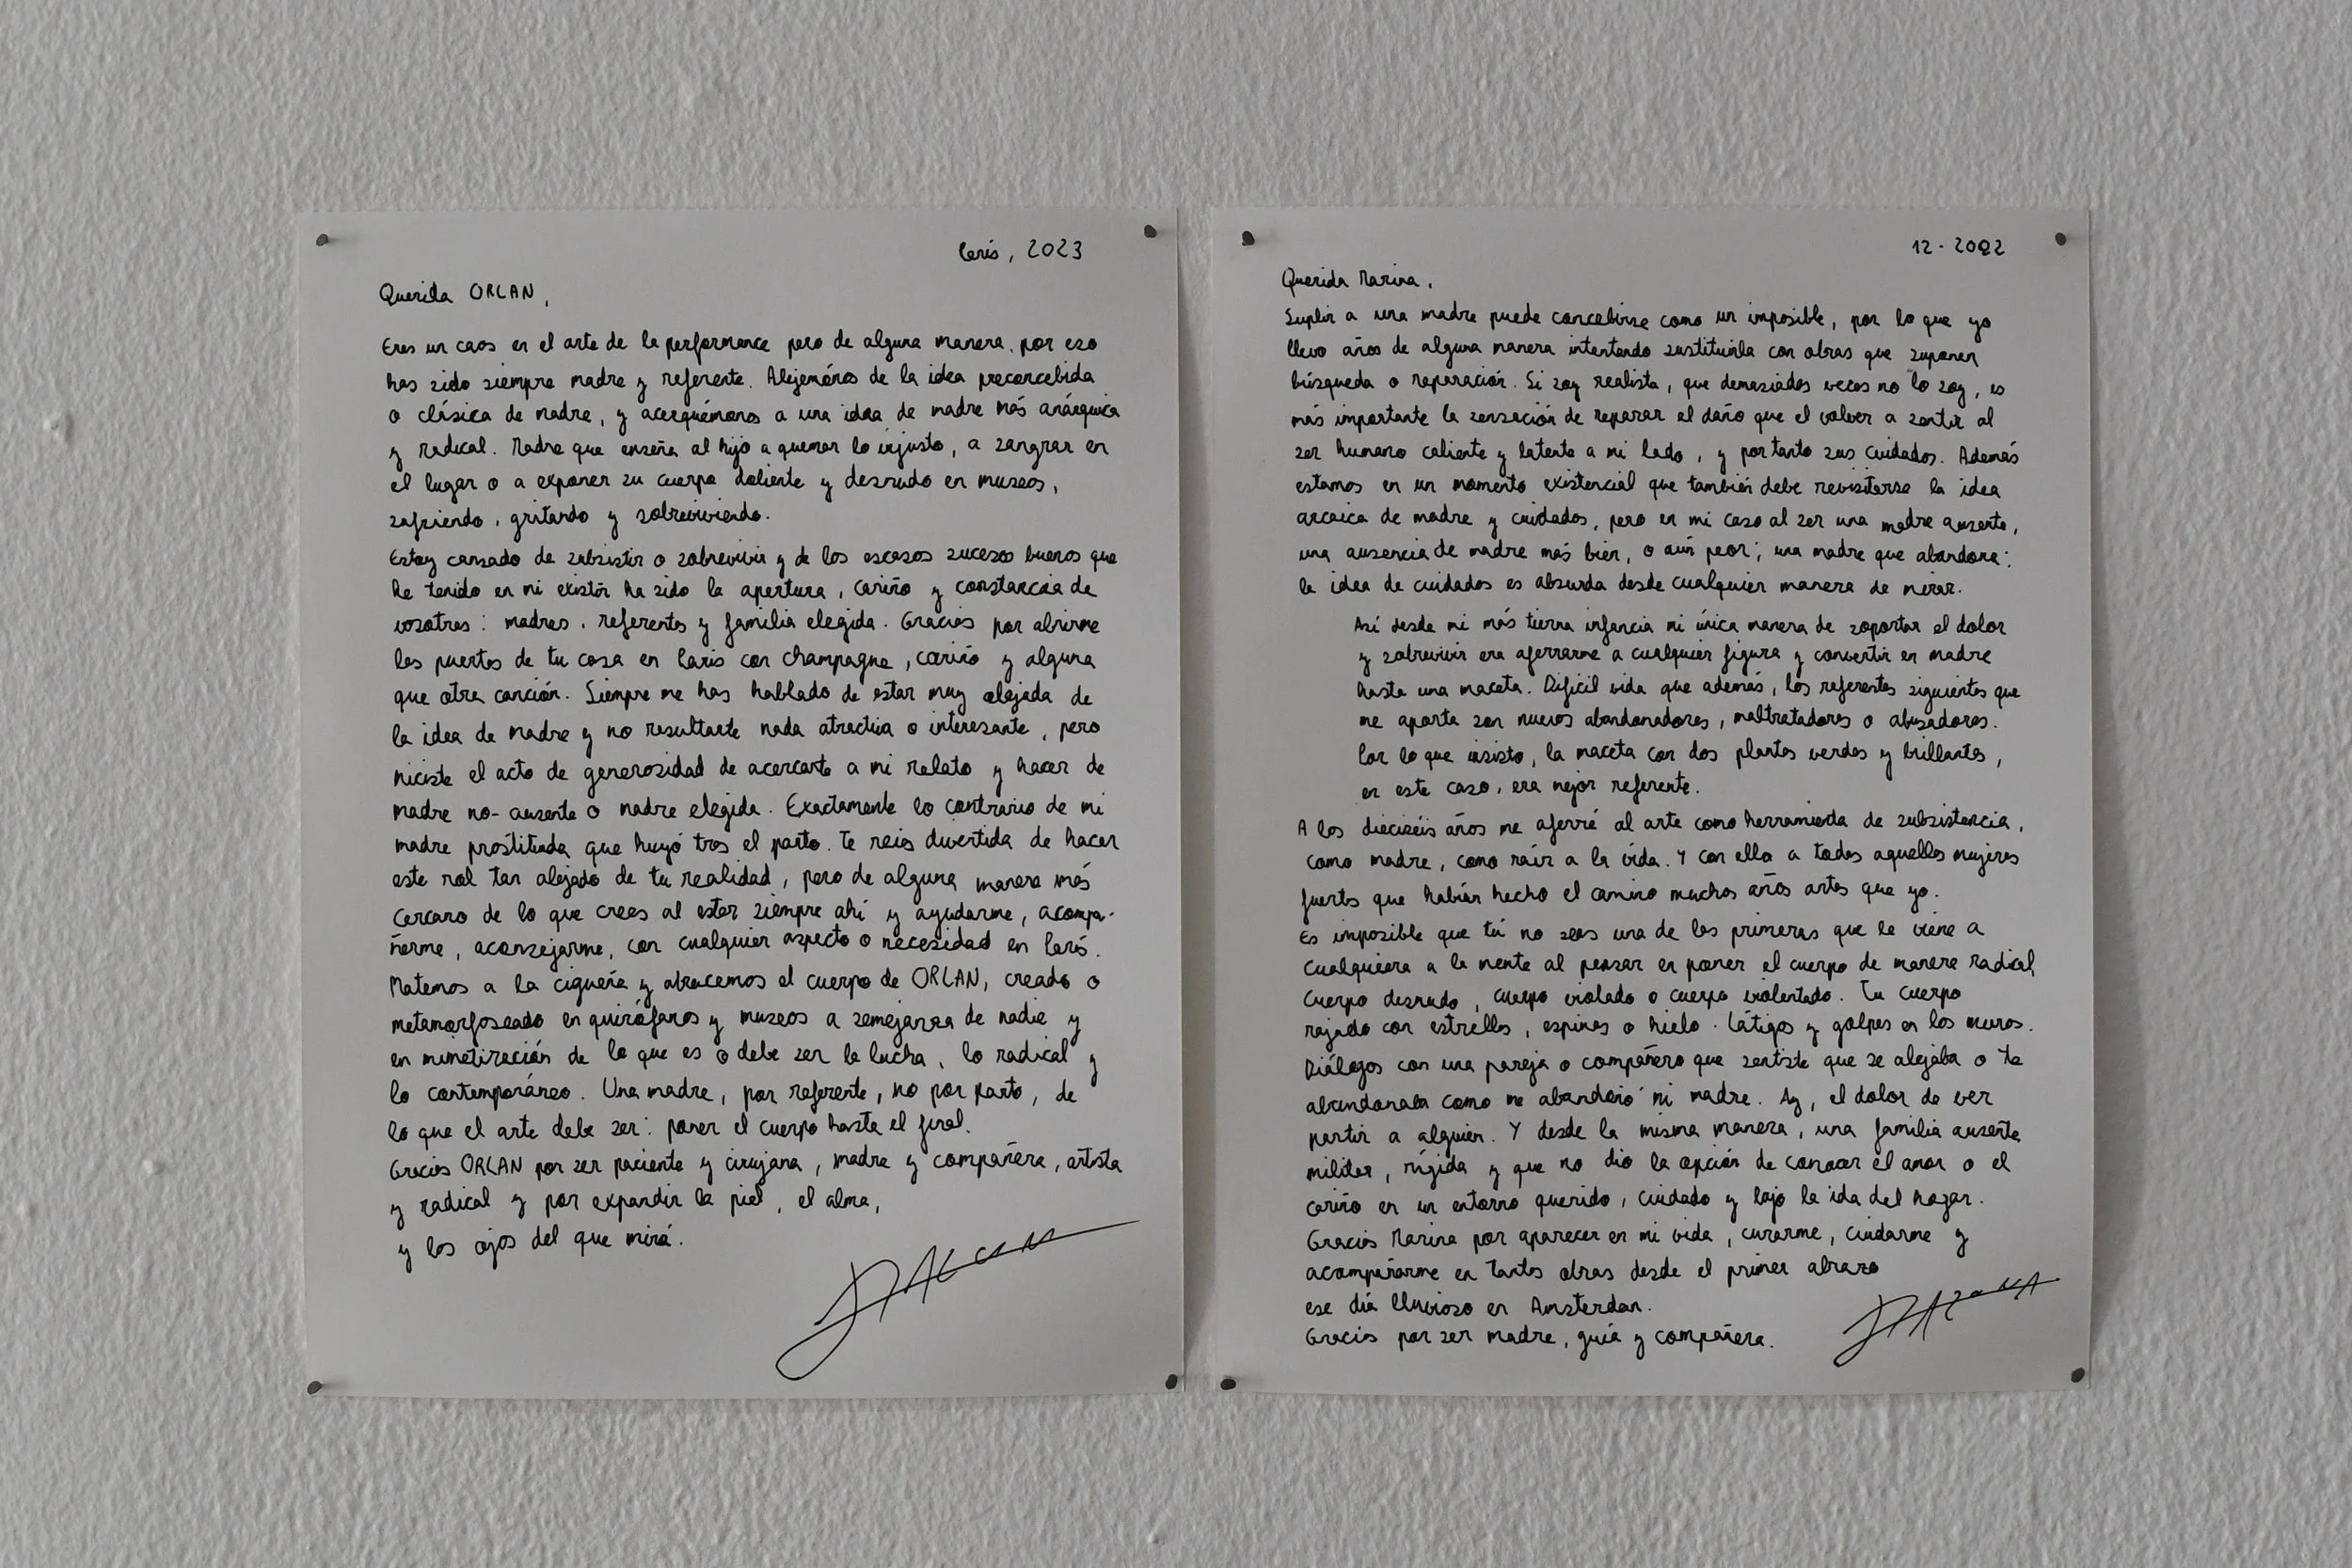 París, 2023
Querida ORLAN,
Eres un caos en el arte de la performance pero de alguna manera, por eso
has sido siempre madre y referente. Alejémonos de la idea preconcebida
o clásica de madre, y acerquémonos a una idea de madre más anárquica
y radical. Madre que enseña al hijo a quemar lo injusto, a sangrar en
el lugar o a exponer su cuerpo doliente y desnudo en museos,
sufriendo, gritando y sobreviviendo.
Estoy cansado de subsistir o sobrevivir y de los escasos sucesos buenos que
he tenido en mi existir ha sido la apertura, cariño y constancia de
vosotras: madres, referentes y familia elegida. Gracias por abrirme
las puertas de tu casa en París con champagne, cariño y alguna
que otra canción. Siempre me has hablado de estar muy alejada de
la idea de madre y no resultarte nada atractiva o interesante, pero
hiciste el acto de generosidad de acercarte a mi relato y hacer de
madre no-ausente o madre elegida. Exactamente lo contrario de mi
madre prostituida que huyó tras el parto. Te reís divertida de hacer
este rol tan alejado de tu realidad, pero de alguna manera más
cercano de lo que crees al estar siempre ahí y ayudarme, acompa-
ñarme, aconsejarme, con cualquier aspecto o necesidad en París.
Matemos a la cigueña y abracemos el cuerpo de ORLAN, creado o
metamorfoseado en quirófanos y museos a semejanza de nadie y
en mimetización de lo que es o debe ser la lucha, lo radical y
lo contemporáneo. Una madre, por referente, no por parto, de
lo que el arte debe ser: poner el cuerpo hasta el final.
Gracias ORLAN por ser paciente y cirujana, madre y compañera, artista
y radical y por expandir la piel, el alma,
y los ojos del que mira.
12-2022
Querida Marina,
Suplir a una madre puede concebirse como un imposible, por lo que yo
llevo años de alguna manera intentando sustituirla con obras que suponen
búsqueda o reparación. Si soy realista, que demasiadas veces no lo soy, es
más importante la sensación de reparar el daño que el volver a sentir al
ser humano caliente y latente a mi lado, y por tanto sus cuidados. Además
estamos en un momento existencial que también debe revisitarse la idea
arcaica de madre y cuidados, pero en mi caso al ser una madre ausente,
una ausencia de madre más bien, o aún peor; una madre que abandona:
la idea de cuidados es absurda desde cualquier manera de mirar.
Así desde mi más tierna infancia mi única manera de soportar el dolor
y sobrevivir era aferrarme a cualquier figura y convertir en madre
hasta una maceta. Difícil vida que además, los referentes siguientes que
me aporta son nuevos abandonadores, maltratadores o abusadores.
Por lo que insisto, la maceta con dos plantas verdes y brillantes,
en este caso, era mejor referente.
A los dieciséis años me aferré al arte como herramienta de subsistencia,
como madre, como raíz a la vida. Y con ello a todas aquellas mujeres
fuertes que habían hecho el camino muchos años antes que yo.
Es imposible que tú no seas una de las primeras que le viene a
cualquiera a la mente al pensar en poner el cuerpo de manera radical
Cuerpo desnudo, cuerpo violado o cuerpo violentado. Tu cuerpo
rajado con estrellas, espinas o hielo. Látigos y golpes en los muros.
Diálogos con una pareja o compañero que sentiste que se alejaba o te
abandonaba como me abandonó mi madre. Ay, el dolor de ver
partir a alguien. Y desde la misma manera, una familia ausente
militar, rígida y que no dio la opción de conocer el amor o el
cariño en un entorno querido, cuidado y bajo la ida del hogar.
Gracias Marina por aparecer en mi vida, curarme, cuidarme y
acompañarme en tantas obras desde el primer abrazo
ese día lluvioso en Amsterdan.
Gracias por ser madre, guía y compañera.